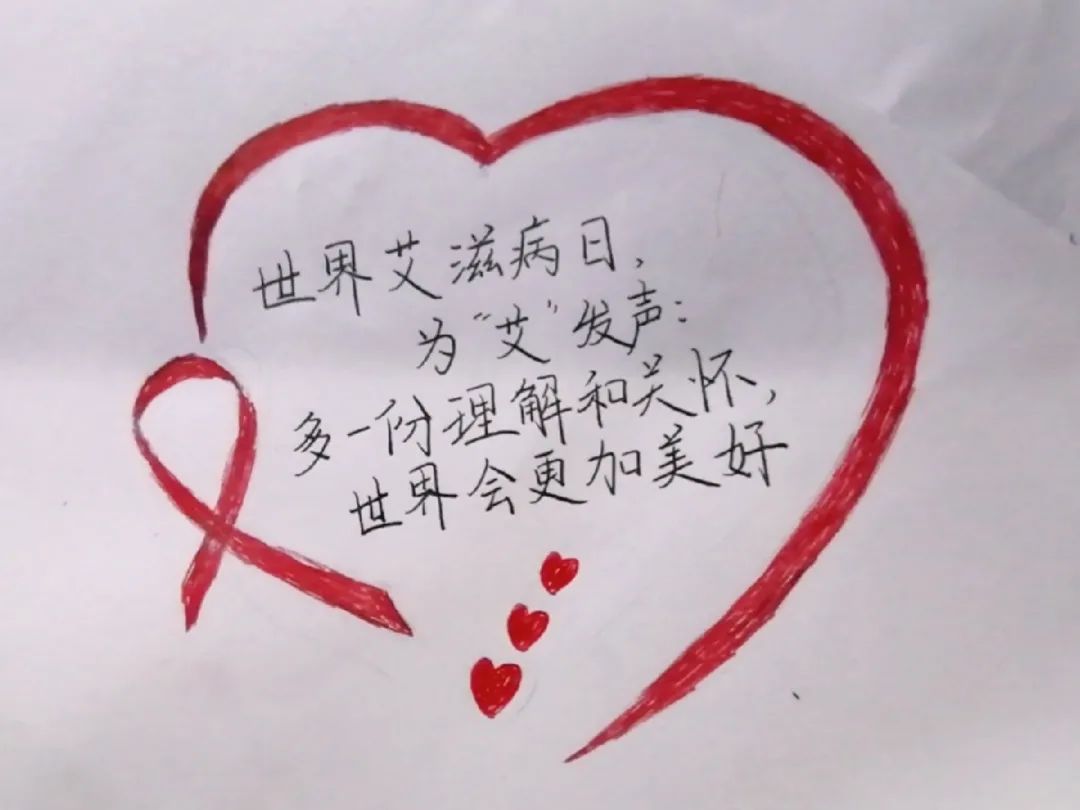 世界艾滋病日，
为“艾”发声：
多一份理解和关怀，
世界会更加美好